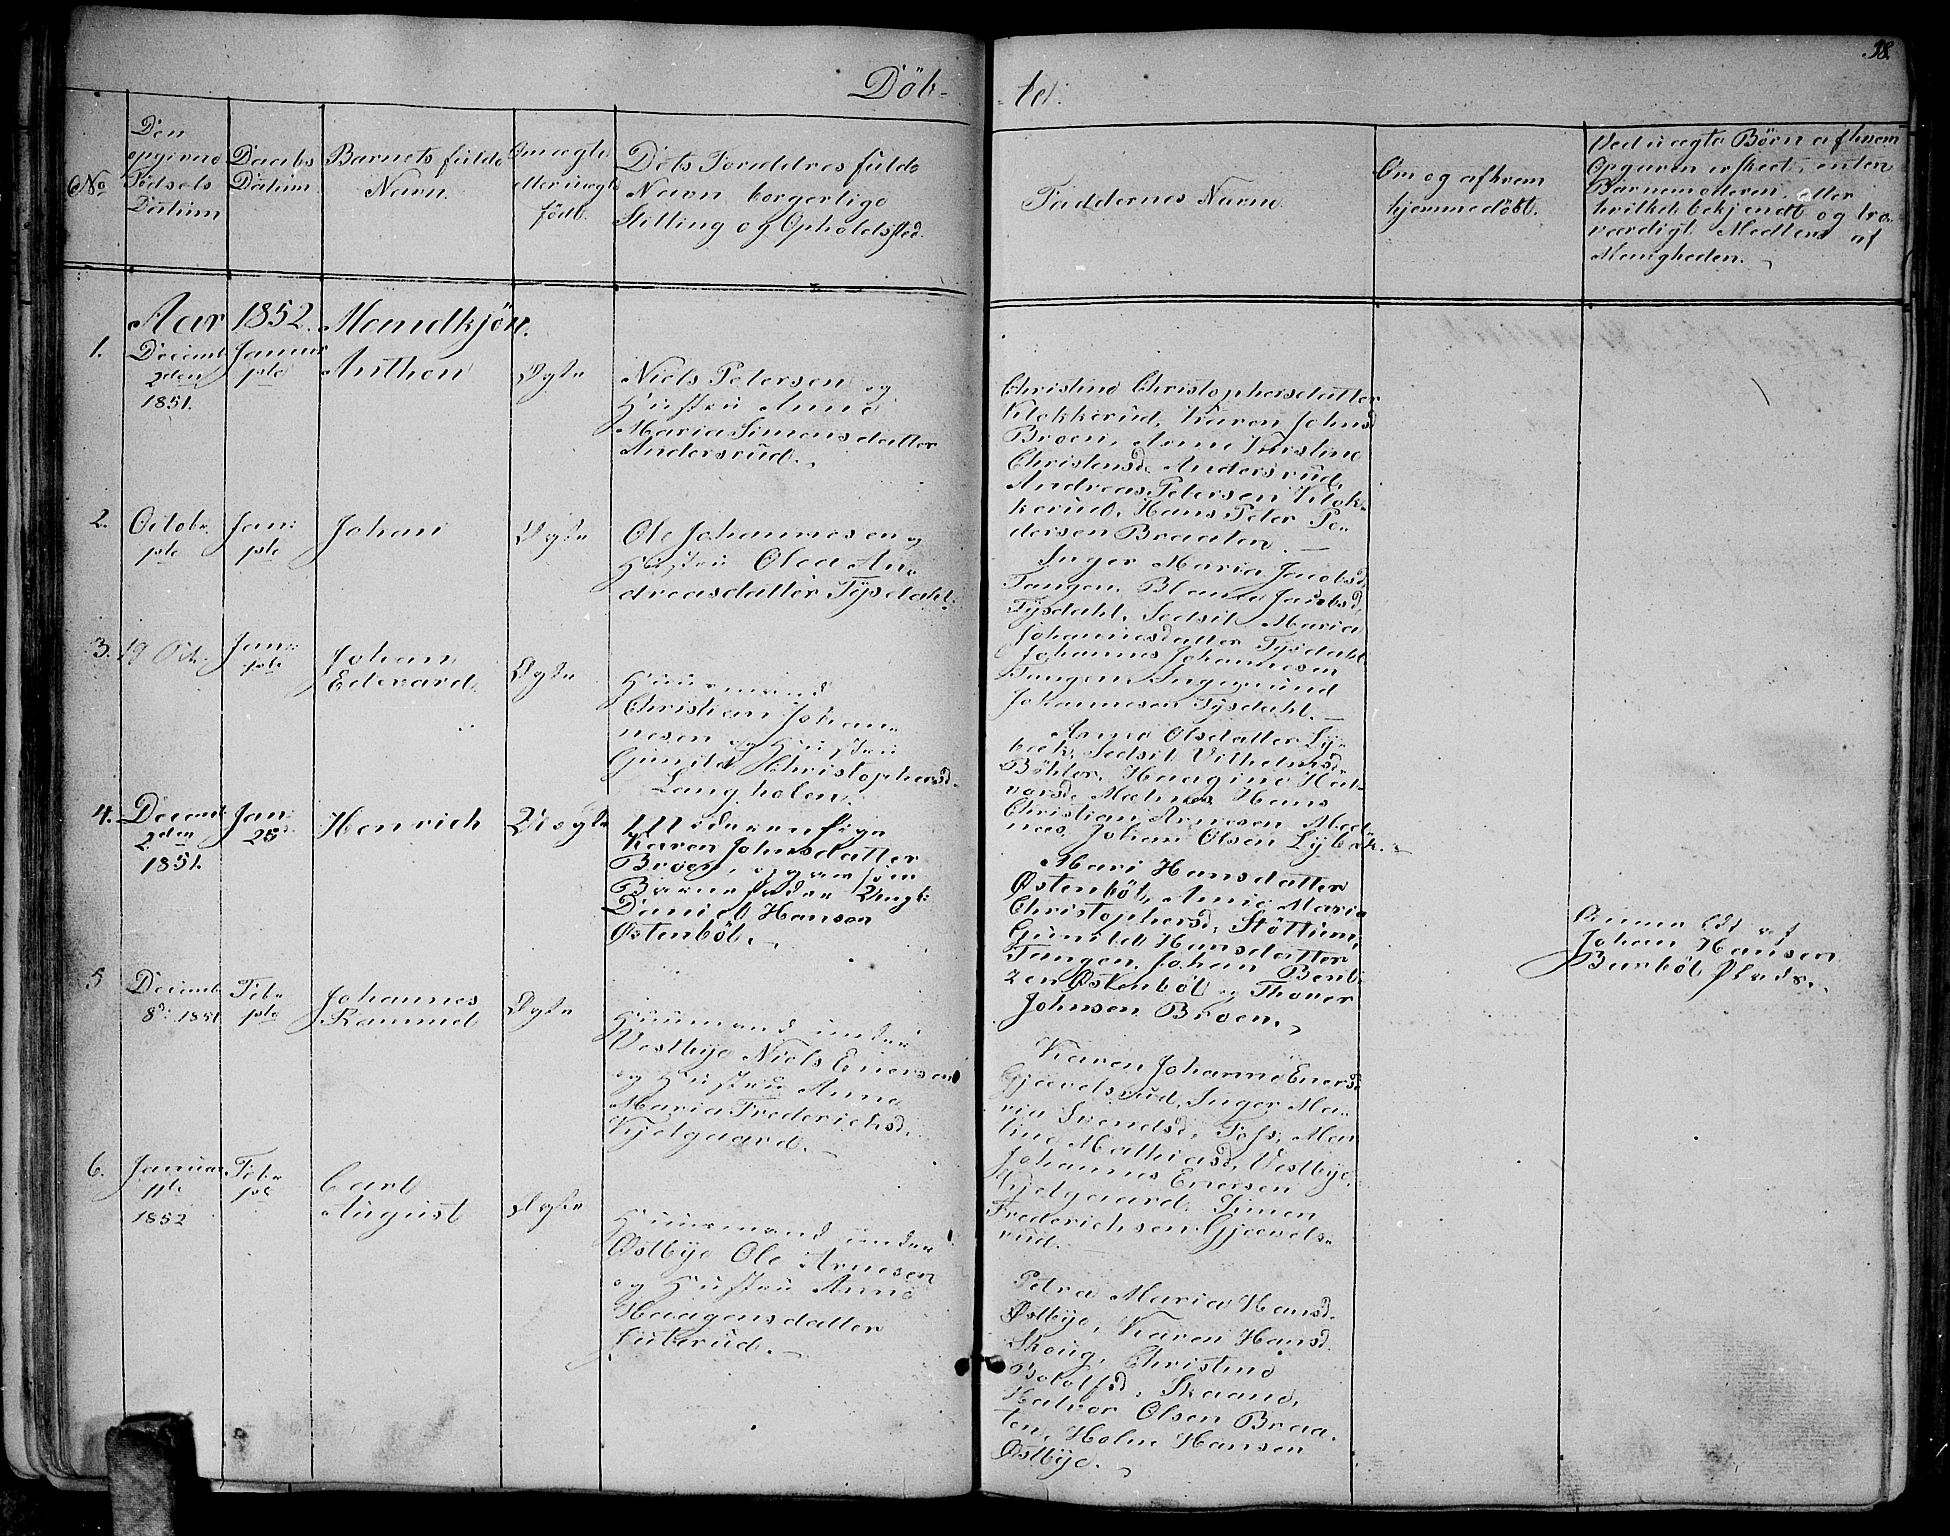 38.
Döb-
-te:
No
Den
opgivne
Födsels
Datum
Daabs
Datum
Barnets fulde
Navn.
Om ægte
eller uægte
födt.
Dets Forældres fulde
Navn borgerlige
Stilling og Opholdsted.
Faddernes Navne
Om og af hvem
hjemmedöbt.
Ved uægte Börn af hvem
Opgaven er skeet, enten
Barnemoderen eller
hvilket bekjendt og tro
værdigt Medlem af
Menigheden.
Aar 1852. Mandkjön.
1.
Decemb
2den
1851.
Januar
1ste
Anthon
Ægte
Niels Petersen og
Hustru Anne
Maria Simensdatter
Andersrud.
Christine Christophersdatter
Klokkerud, Karen Johnsd
Broen, Anne Kirstine
Christensd. Andersrud,
Andreas Petersen Klok-
kerud, Hans Peter Pe-
dersen Braaten.
2.
Octobr
1ste
Jan:
1ste
Johan
Ægte
Ole Johannesen og
Hustru Olea An-
dreasdatter Tysdahl.
Inger Maria Jacobsd
Tangen, Jacobsd,
Tysdahl, Sedsil Maria
Johannesdatter Tysdahl
Johannes Johannesen
Tangen, Ingemund
Johannesen Tysdahl.
3.
19 Oct.
Jan:
1ste
Johan
Edevard.
Ægte
Huusmand
Christian Johan-
nesen og Hustru
Gunild Christophersd.
Langholen.
Anne Olsdatter Ly-
bæk, Sedsil Vilhelmsd
Böhler, Haagine Hal-
vorsd. Mælnes, Hans
Christian Arnesen Mæl-
nes, Johan Olsen Lybæk.
4.
Decemb
2den
1851.
Jan:
25d
Henrich
Uægte
Karen Johnsdatter
Broen, opgav som
Barnefader Ungk:
Daniel Hansen
Østenböl.
Mari Hansdatter
Østenböl, Anne Maria
Christophersd, Stöttum,
Gunild Hansdatter
Tangen, Johan Bent-
zen Østenböl og Thoner
Johnsen Broen.
Johan Hansen
Burböl Plads.
5
Decemb
8d: 1851
Feb-
1ste
Johannes
Rammel
Ægte
Huusmand under
Vestbye Niels Enersen
og Hustru Anne
Maria Frederichsd.
Kjelgaard.
Karen Johanne Enersd
Gjævelsrud, Inger Ma-
ria Svendsd. Foss, Ma-
line Mathiasd. Vestbye,
Johannes Enersen
Kjelgaard, Simen
Frederichsen Gjævels-
rud.
6.
Januar
11te
1852
Feb-
1ste
Carl
August
Ægte
Huusmand under
Østbye Ole Arnesen
og Hustru Anne
Haagensdatter
Luterud.
Petra Maria Hansd.
Østbye, Karen Hansd.
Skoug, Christine
Botolfsd. Straand,
Halvor Olsen Braa-
ten, Holm Hansen
Østbye.